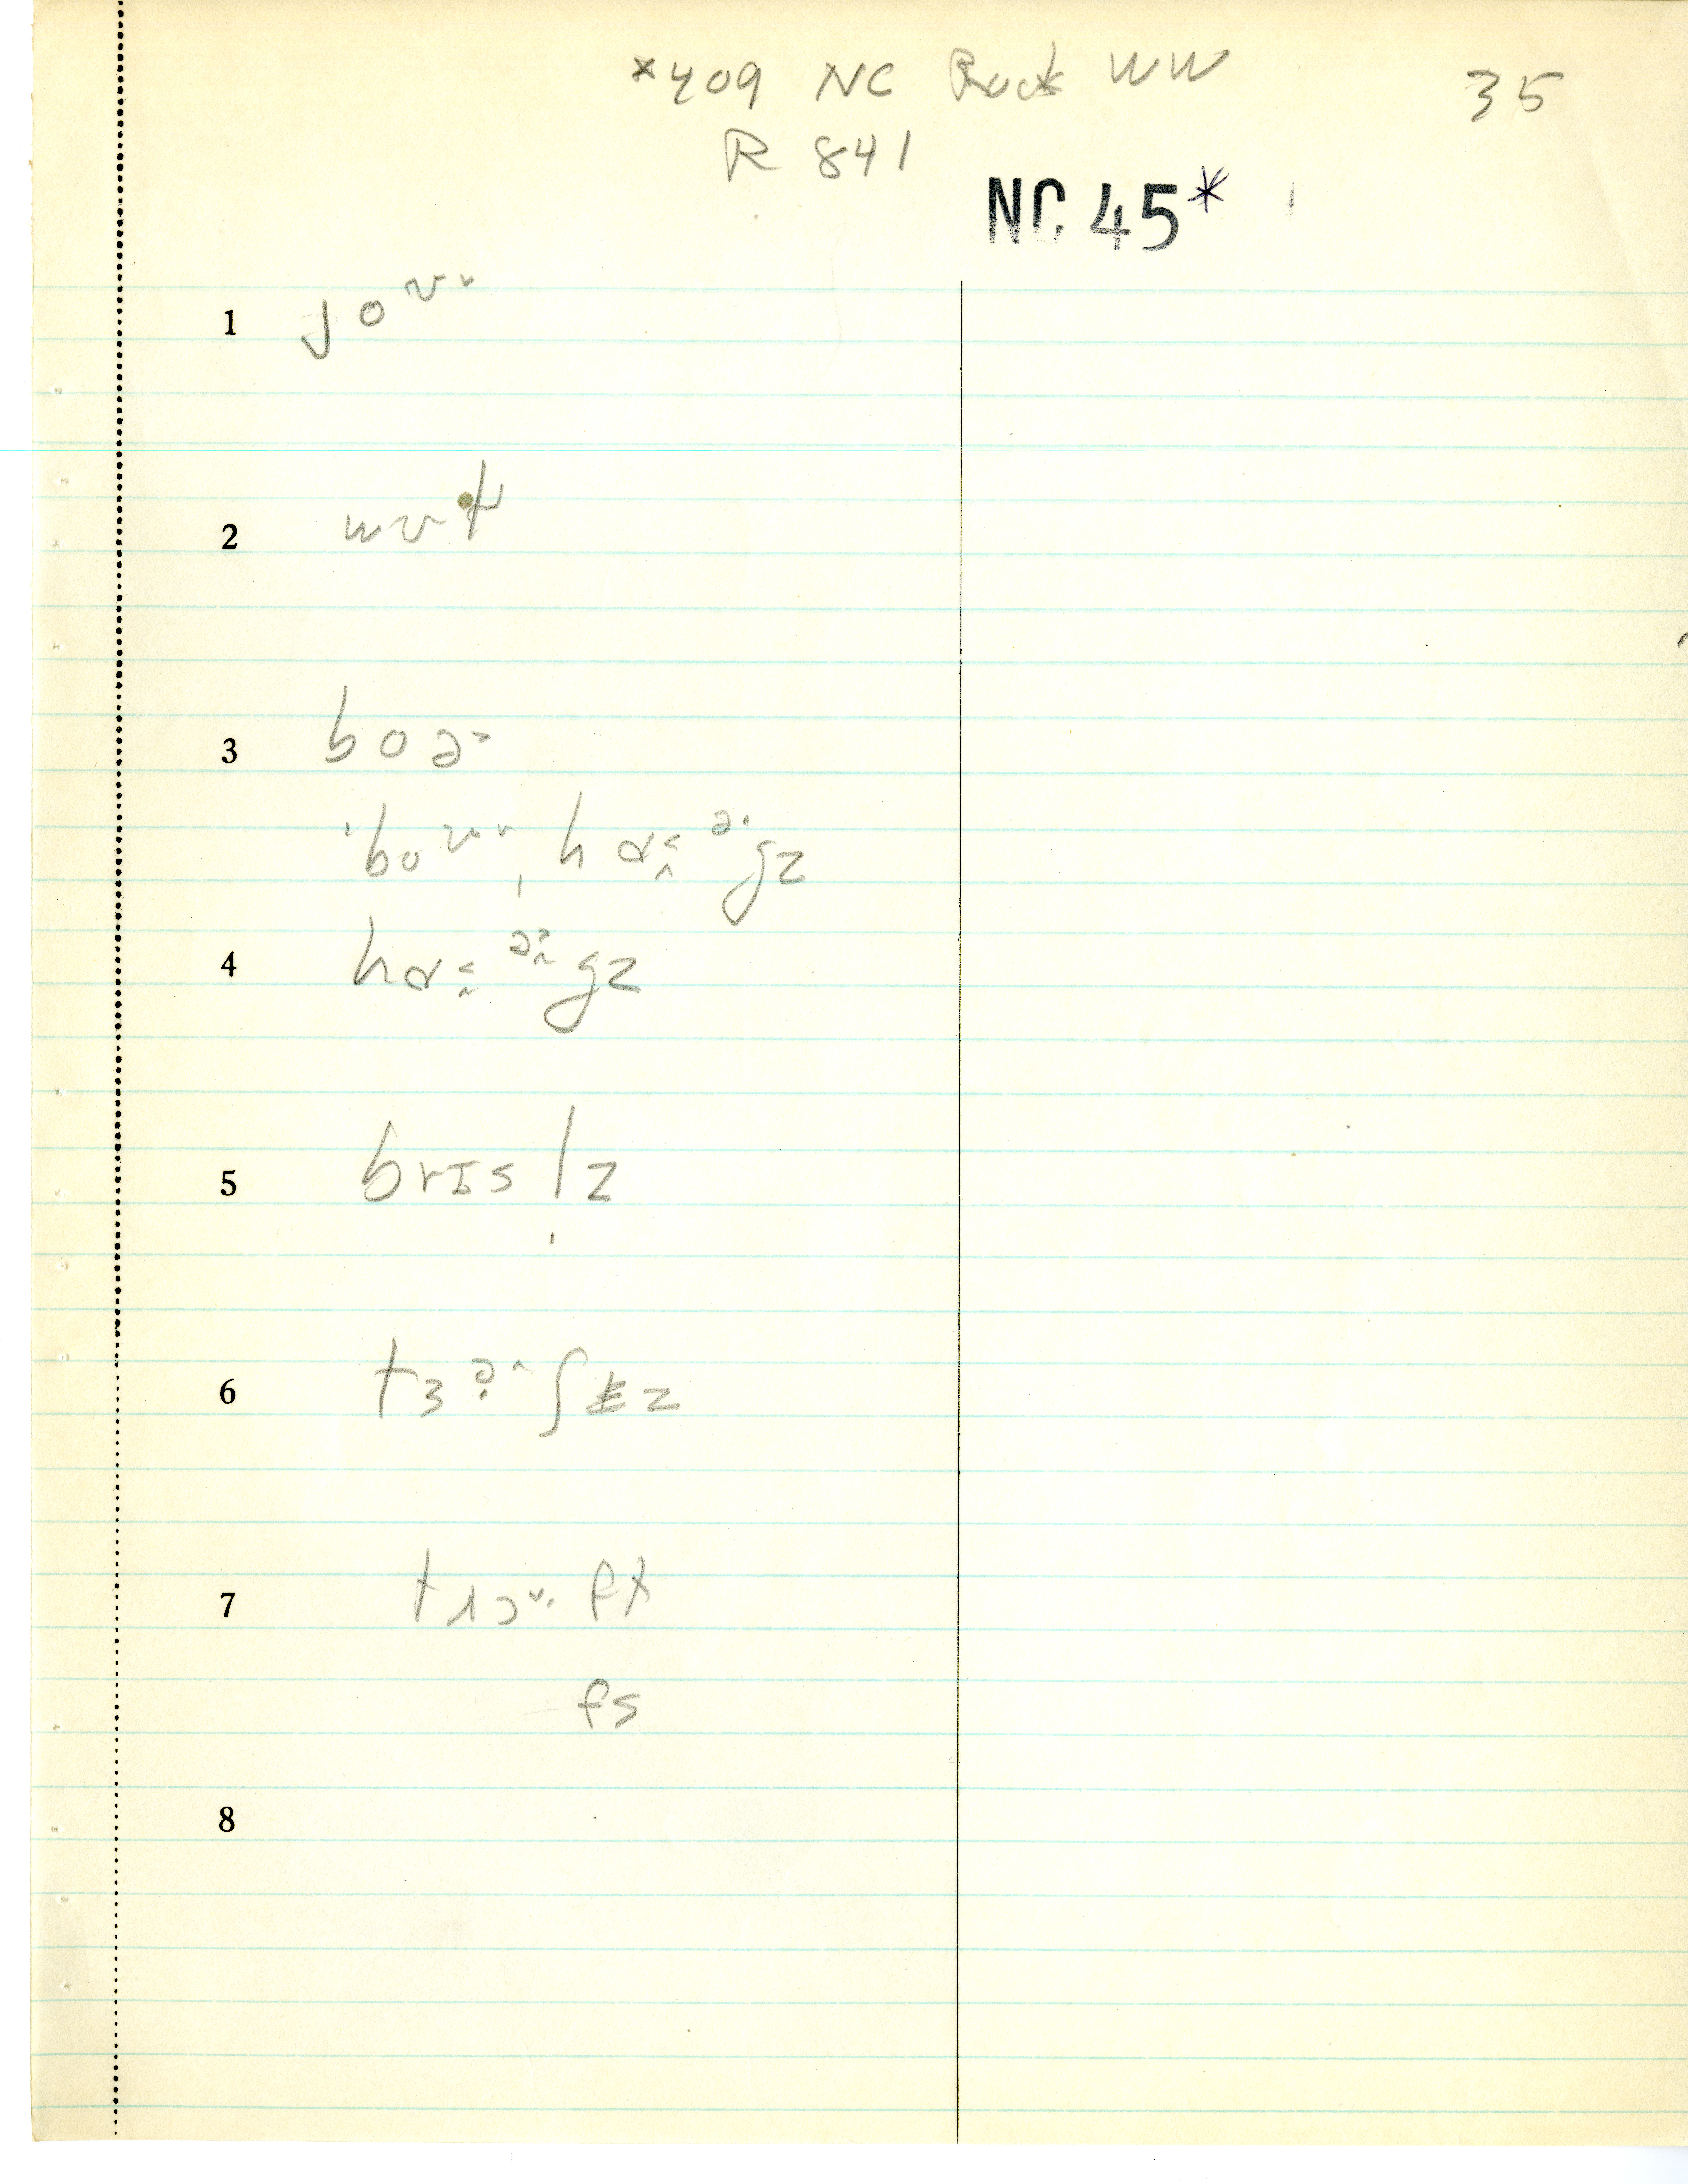 *409 NC Rock WW 35
R 841
NC 45*
1 joʊ˞
2 wʊt
3 boə
ˈboʊˌhɑəgz
4 hɑəgz
5 brɪsl̩z
6 tɜəʃɨz
7 trɔʊft
fs
8